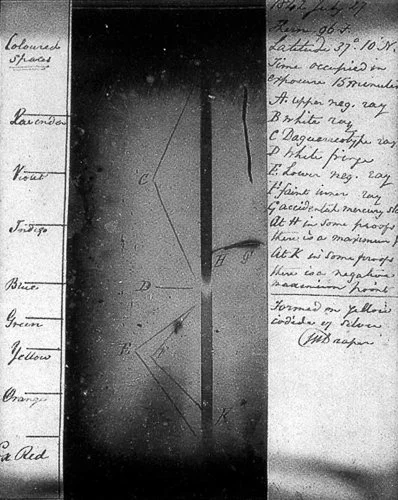 Coloured
Spaces
Lavendar
Violet
Indigo
Blue
Green
Yellow
Orange
Ex Red
C
D
E
F
H
g
K
1842 July 27
Therm 96 F.
Latitude 37° 10' N.
Time occupied in
exposure 15 minutes
A. upper neg. ray
B White ray
C Daguerreotype ray
D White fringe
E Lower neg. ray
F faint inner ray
G accidental mercury
At H in some proofs
there is a maximum
At K in some proofs
there is a negative
maximum point
Formed on yellow
iodide of silver
JW Draper